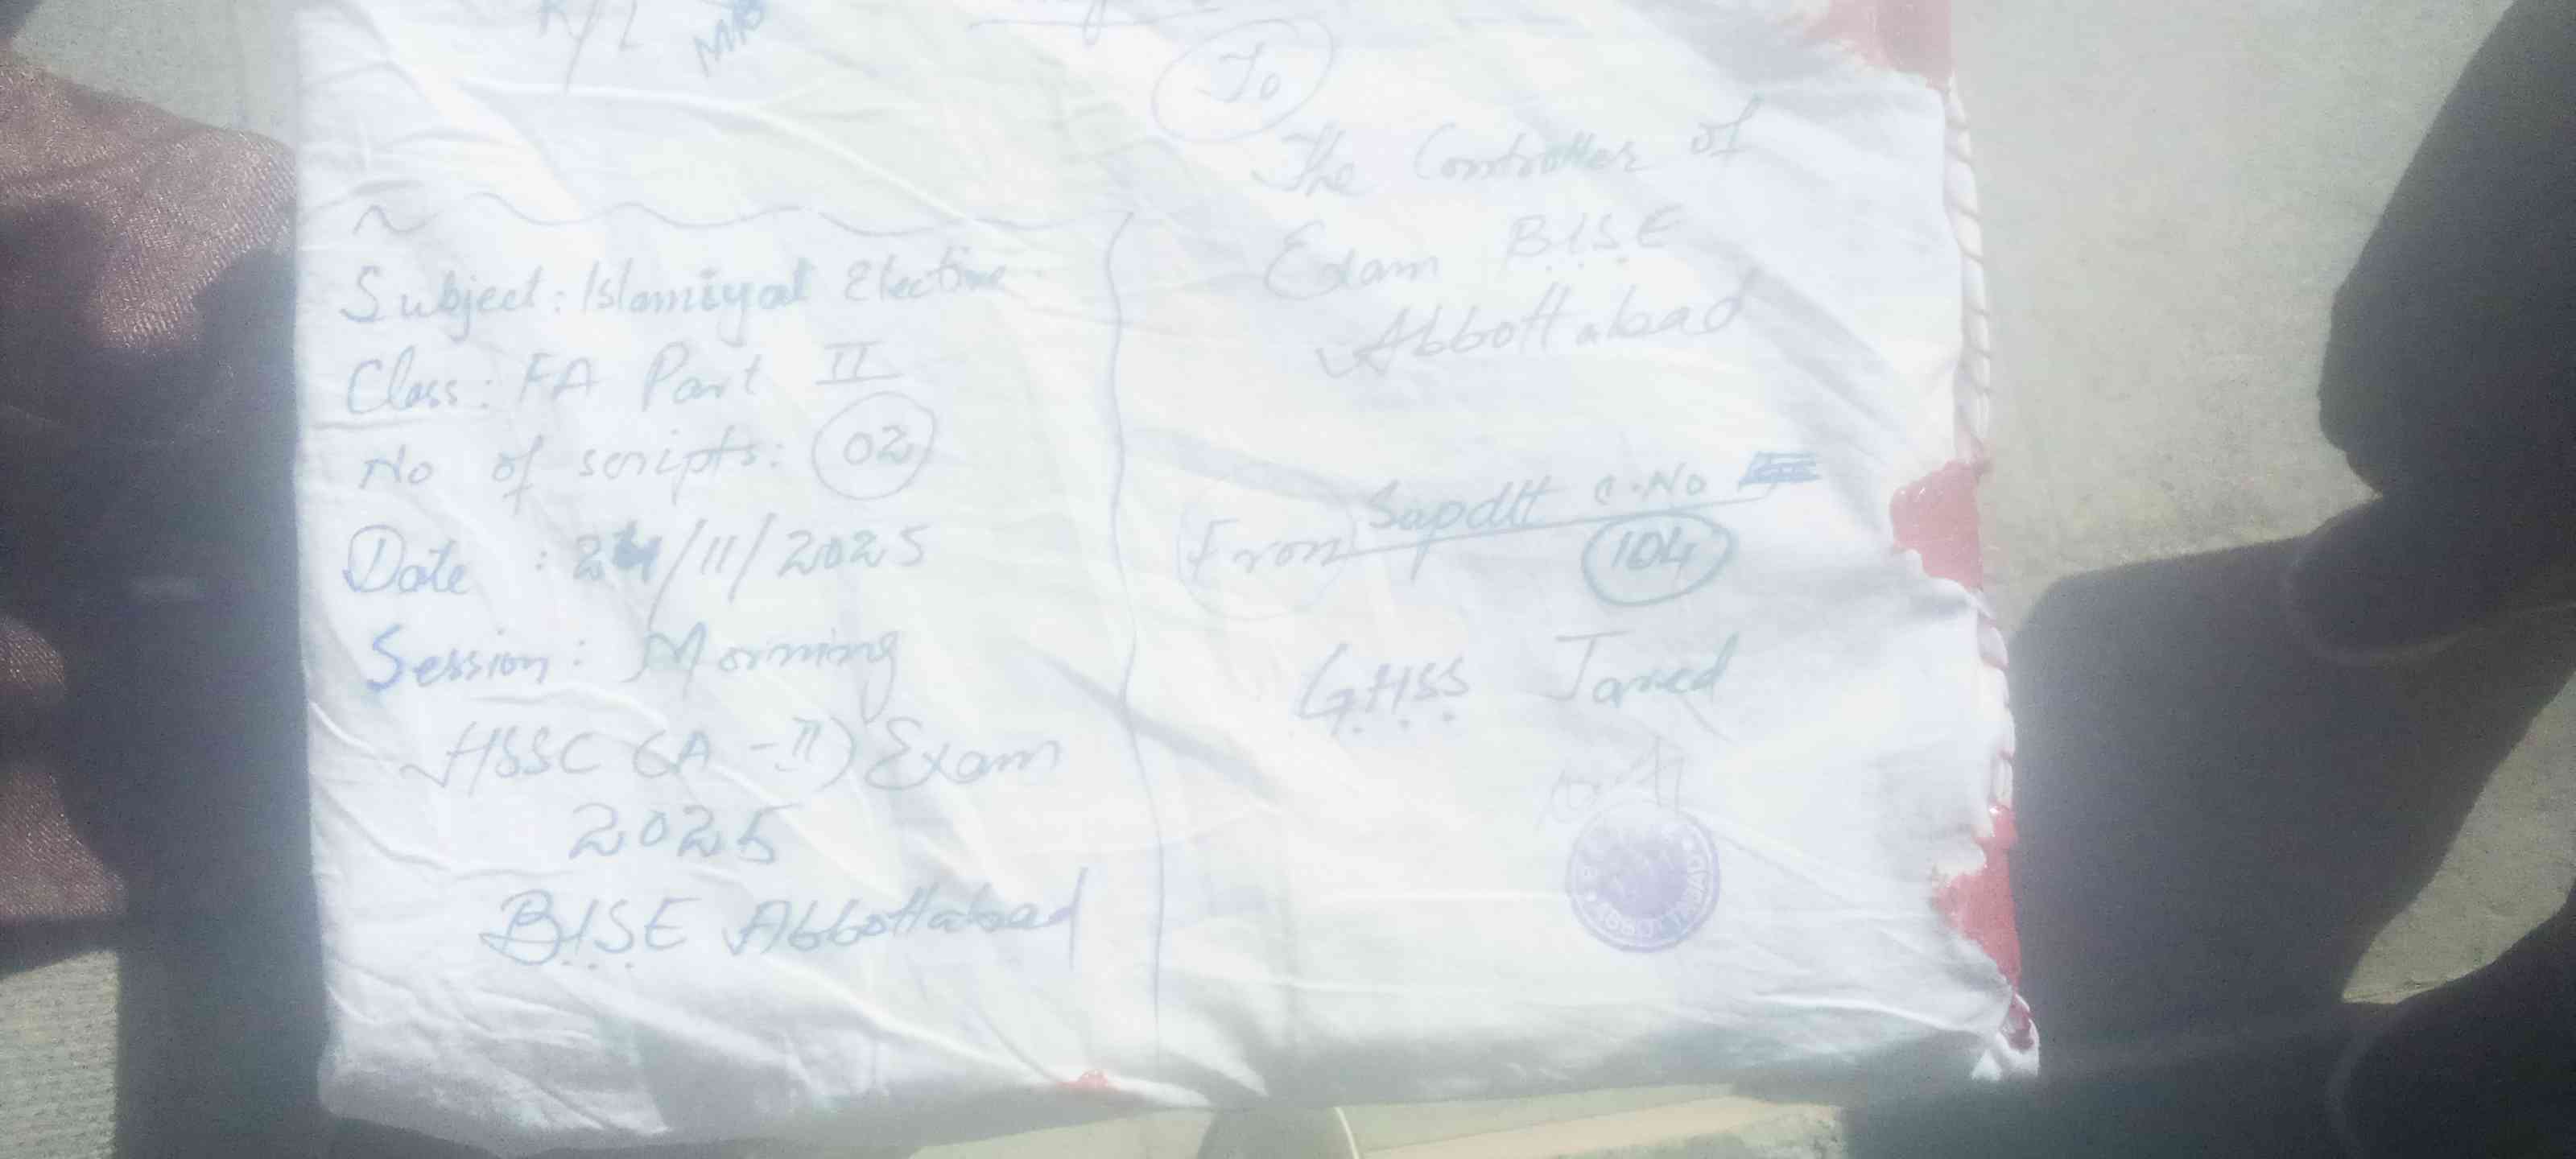 R/L MRB
Subject: Islamiyat Elective
Class: FA Part II
No of scripts: 02
Date : 24/11/2025
Session: Morning
HSSC (A-II) Exam
2025
B.I.S.E Abbottabad
To
The Controller of
Exam B.I.S.E
Abbottabad
From Supdtt C.No
104
G.H.S.S Jared
ABBOTTABAD